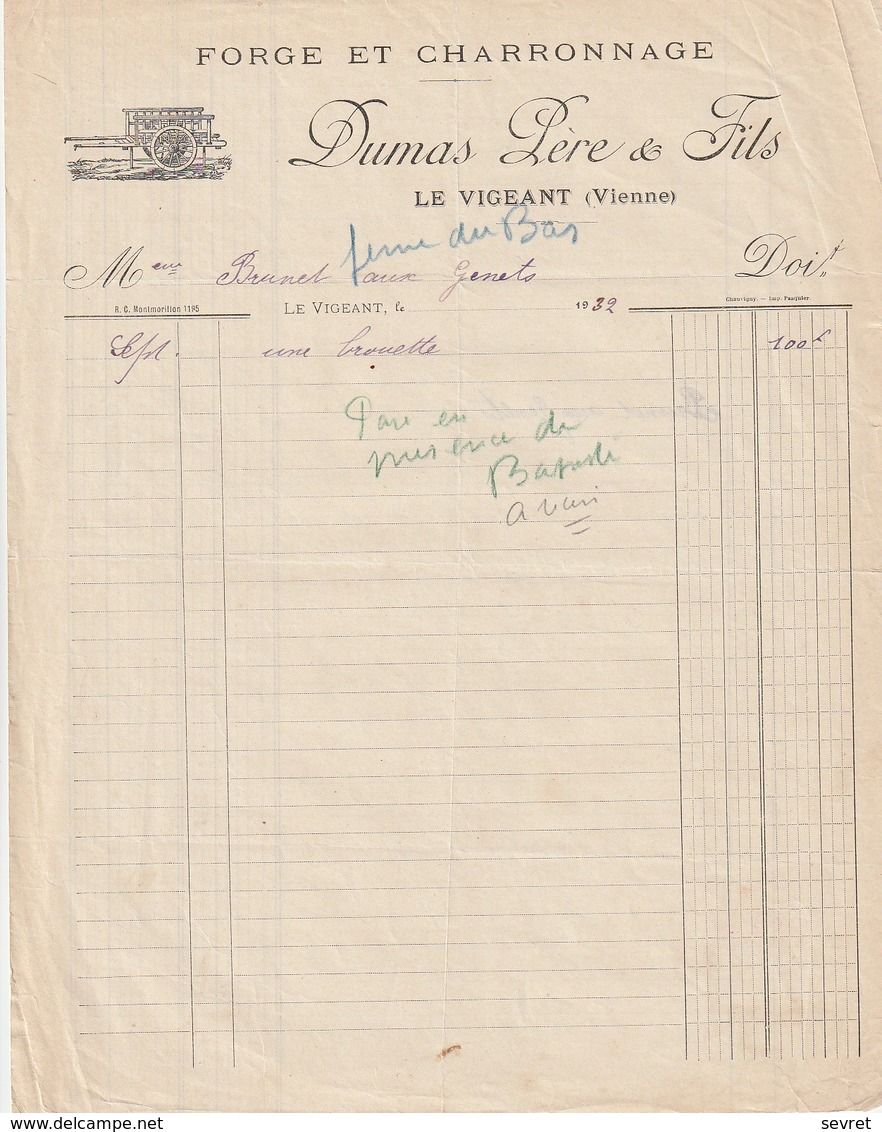 FORGE ET CHARRONNAGE
Dumas Père & Fils
LE VIGEANT (Vienne)
ferme du Bas
Meme Brunet aux Genets Doit
R. C. Montmorillon 1195
LE VIGEANT, le 1932
Chauvigny. — Imp. Pasquier.
Sept. une brouette 100f
en
presence de
www.delcampe.net
sevret